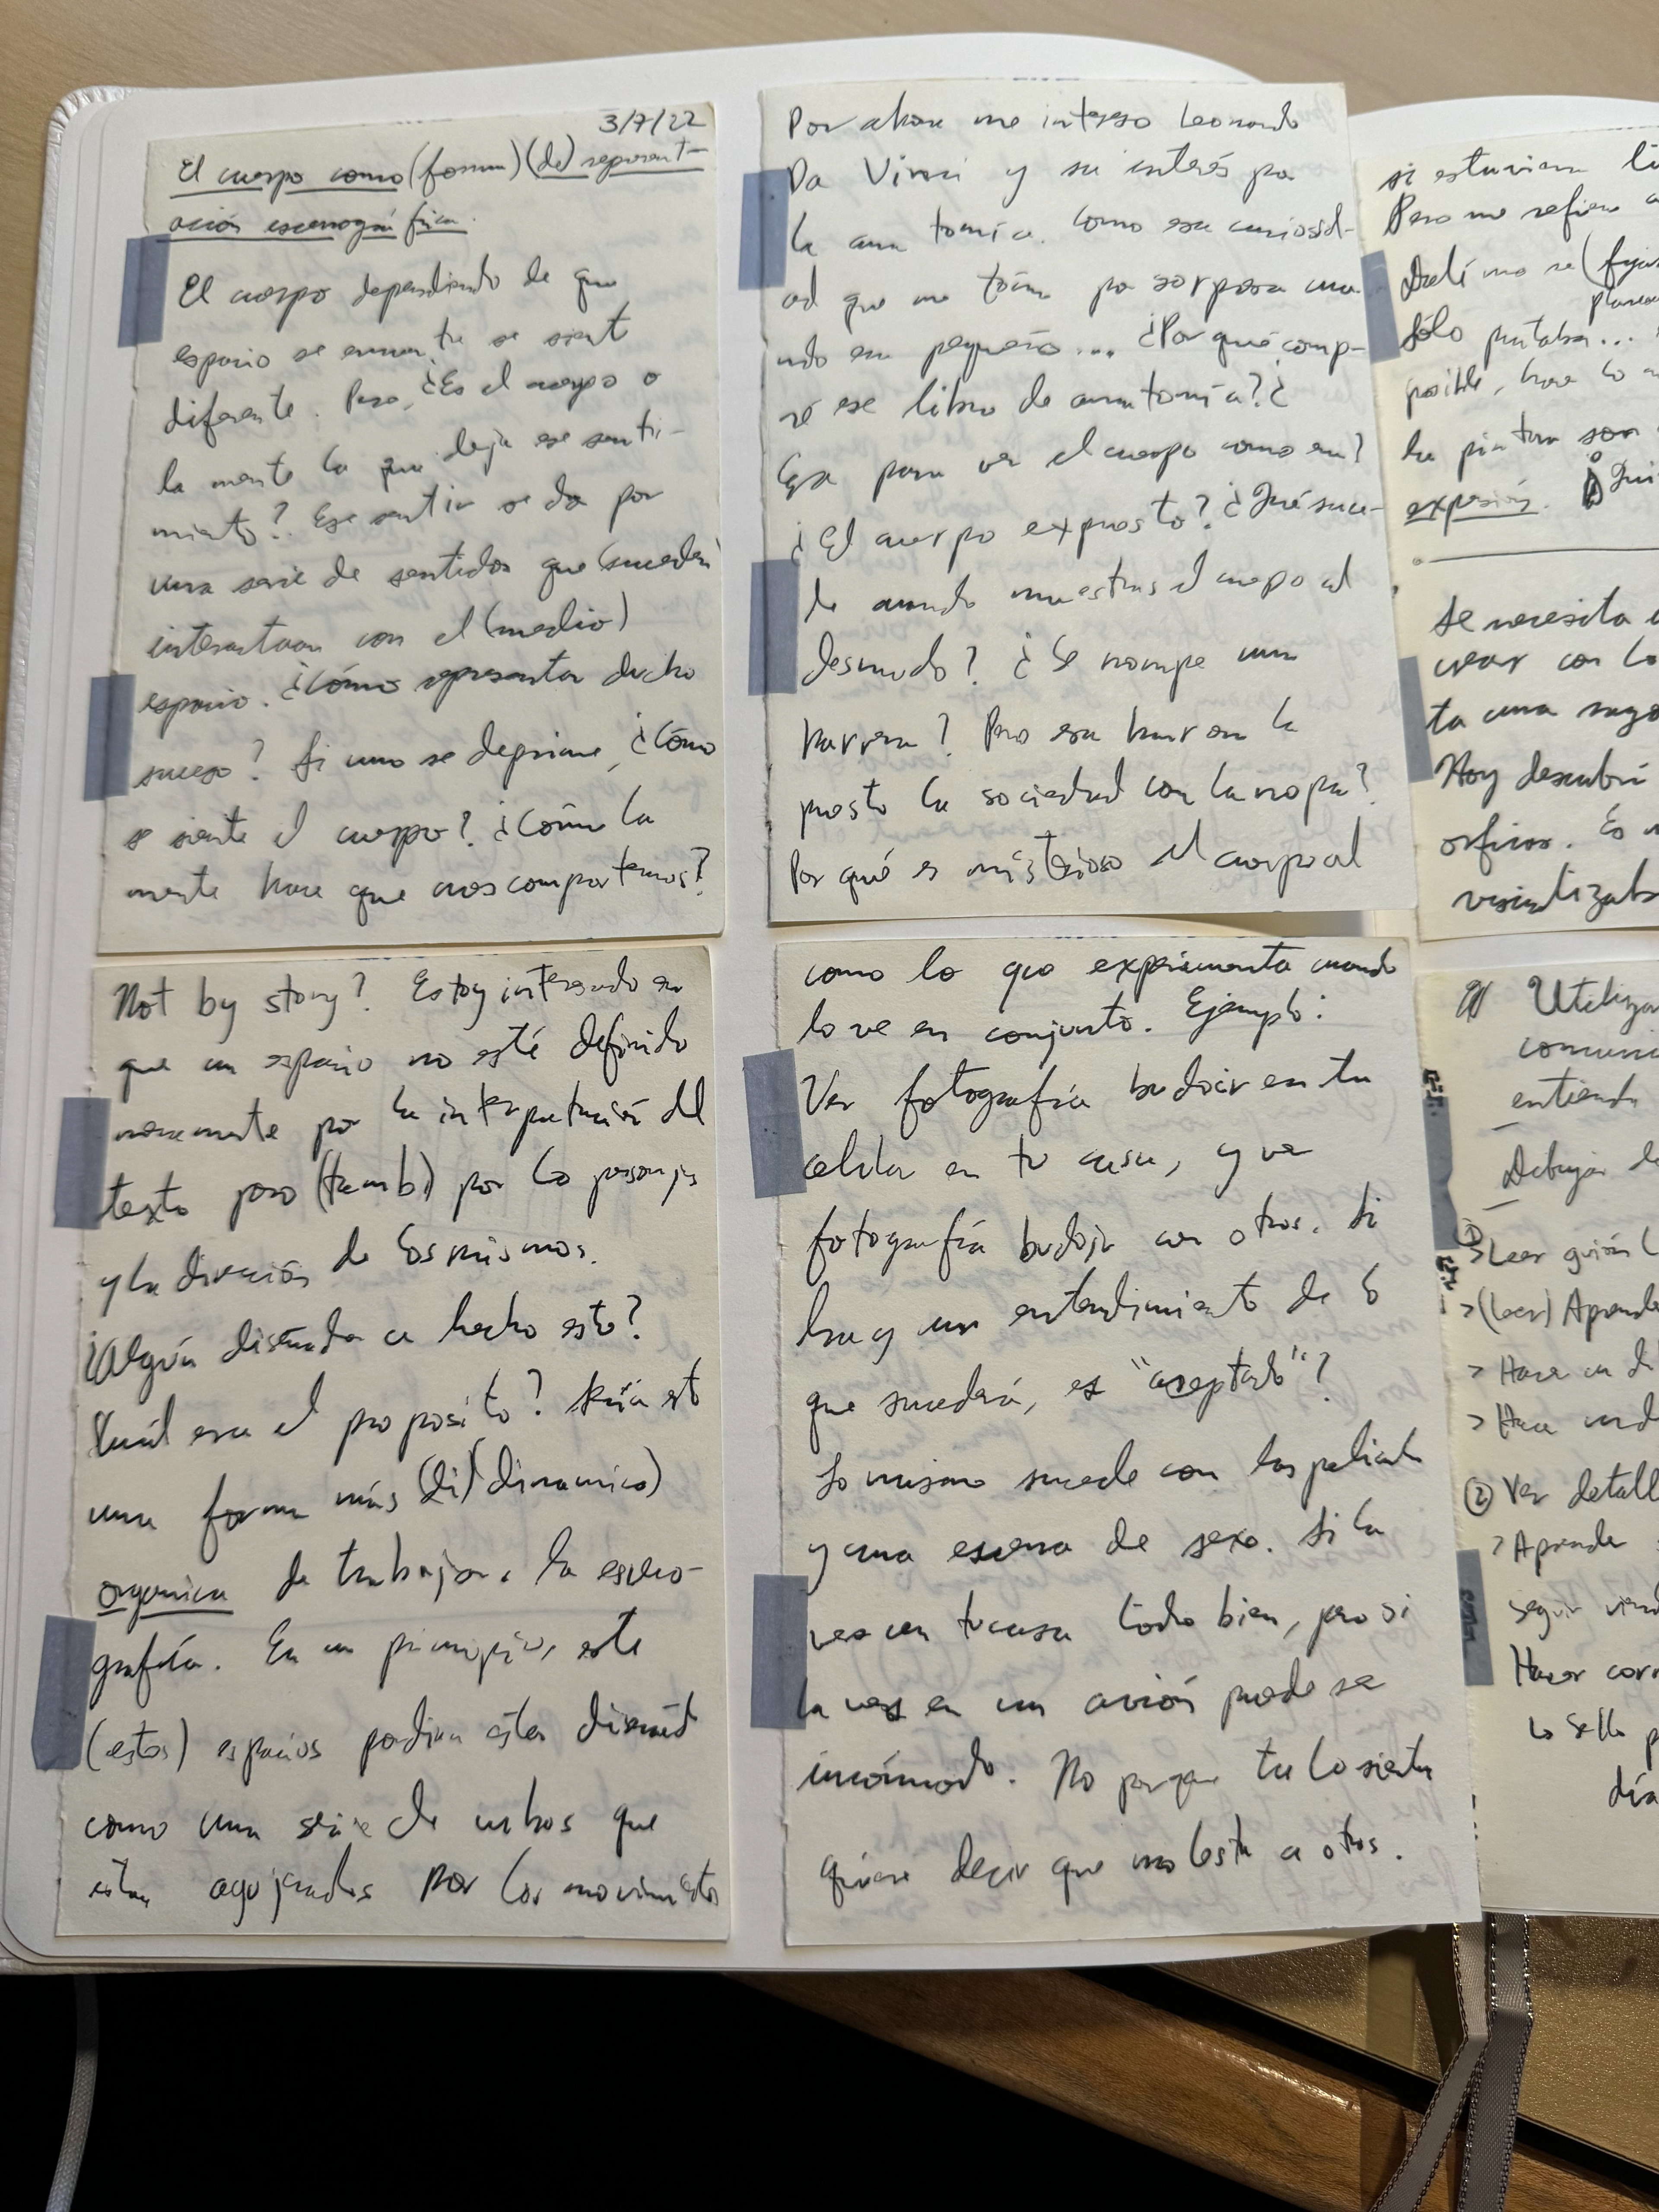 3/7/22
El cuerpo como (forma) (de) represent-
ación escenográfica.
El cuerpo dependiendo de que
espacio se encuentre se sient
diferente. Pero, ¿Es el cuerpo o
la mente la que deja ese senti-
miento? Ese sentir se da por
una serie de sentidos que (suceden)
interactuan con el (medio)
espacio. ¿Cómo representar dicho
suceso? Si uno se deprime, ¿Cómo
se siente el cuerpo? ¿Cómo la
mente hace que nos comportemos?
Not by story? Estoy interesado en
que un espacio no esté definido
meramente por la interpretación del
texto pero (tamb) por los personajes
y la dirección de los mismos.
¿Algún diseñador a hecho esto?
Cuál era el proposito? Sería est
una forma más (di) (dinamica)
organica de trabajar la esceno-
grafía. En un principio, este
(estos) espacios podian estar diseñad
como una serie de cubos que
estan agujerados por los movimientos
Por ahora me intereso Leonardo
Da Vinci y su interés por
la anatomía. Como esa curiosid-
ad que me tomó por sorpresa cua
ndo era pequeño... ¿Por qué comp-
ré ese libro de anatomía? ¿
Era para ver el cuerpo como era?
¿El cuerpo expuesto? ¿Qué suce-
de cuando muestras el cuerpo al
desnudo? ¿Se rompe una
barrera? Pero esa barrera la
puesto la sociedad con la ropa?
Por qué es misterioso el cuerpo al
como lo que experimenta cuando
lo ve en conjunto. Ejemplo:
Ver fotografía budoir en tu
celular en tu casa, y ver
fotografía budoir con otros. Si
hay un entendimiento de lo
que sucederá, es "aceptado"?
Lo mismo sucede con las películas
y una escena de sexo. Si la
ves en tu casa todo bien, pero si
la ves en un avión puede ser
incómodo. No porque tu lo sientas
quiere decir que molesta a otros.
si estuviera
Pero me refiero a
Dalí no se
Sólo pintaba...
posible, hace lo
la pintura son
expresión.
Se necesita
crear con lo
ta una
Hoy descubrí
orficos. Es
visualizab
Utilizar
comuni
entiendo
Dibujar
① Leer guión
> (leer) Aprende
> Hacer un
> Hacer
② Ver detall
> Aprender
seguir viend
Hacer corr
Lo sello
día